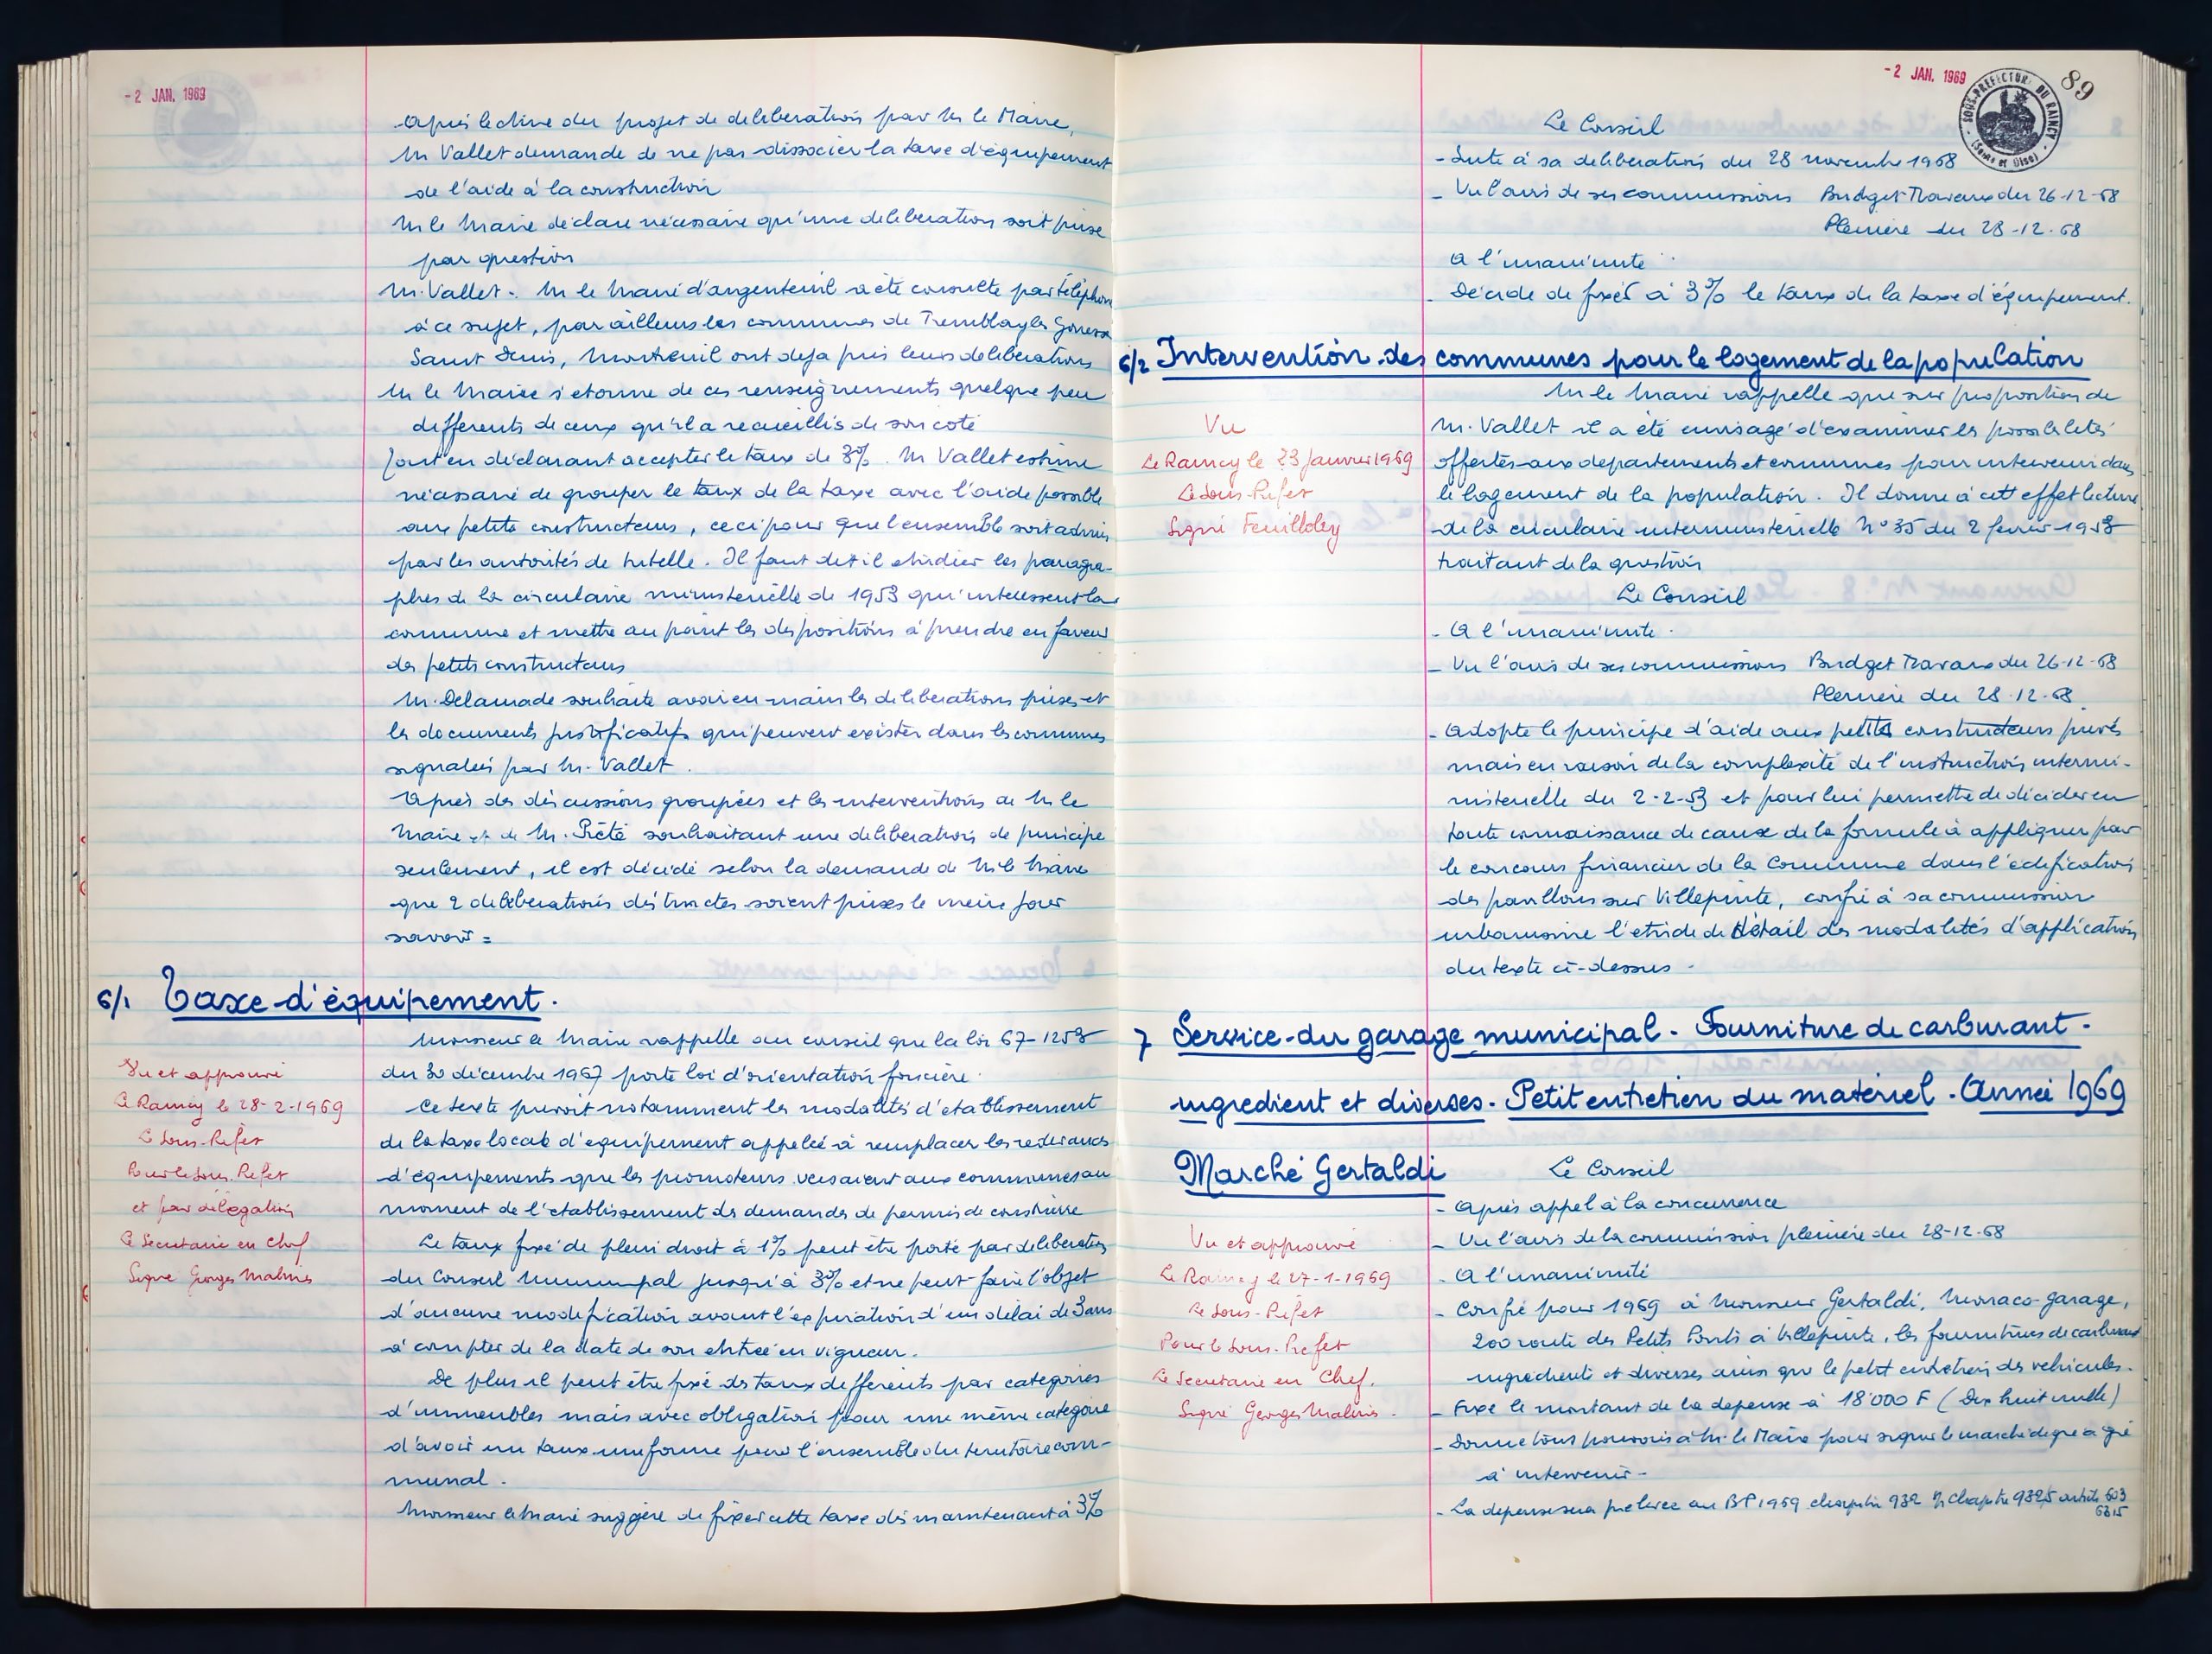 - 2 JAN. 1969
Après lecture du projet de deliberation par M le Maire,
M Vallet demande de ne pas dissocier la taxe d'équipement
de l'aide à la construction
M le Maire déclare nécessaire qu'une deliberation soit prise
par question
M. Vallet - M le Maire d'argenteuil a été consulté par téléphone
à ce sujet, par ailleurs les communes de Tremblay les Gonesse
Saint Denis, Montreuil ont deja pris leurs deliberations
M le Maire s'etonne de ces renseignements quelque peu
differents de ceux qu'il a recueillis de son coté
Tout en déclarant accepter le taux de 3%. M Vallet estime
nécessaire de grouper le taux de la taxe avec l'aide possible
aux petits constructeurs, ceci pour que l'ensemble soit admis
par les autorités de tutelle. Il faut dit il etudier les paragra-
phes de la circulaire ministerielle de 1953 qu'interessent la
commune et mettre au point les dispositions à prendre en faveur
des petits constructeurs
M. Delamade souhaite avoir en main les deliberations prises et
les documents justificatifs qui peuvent exister dans les communes
signalées par M. Vallet.
Après des discussions groupées et les interventions de M le
Maire et de M. Piété souhaitant une deliberation de principe
seulement, il est décidé selon la demande de M le Maire
que 2 deliberations distinctes soient prises le meme jour
savoir =
6/1 Taxe d'équipement.
Monsieur le Maire rappelle au conseil que la loi 67-1253
du 30 décembre 1967 porte loi d'orientation foncière.
Ce texte prevoit notamment les modalités d'etablissement
de la taxe locale d'equipement appelée à remplacer les redevances
d'équipements que les promoteurs versaient aux communes au
moment de l'etablissement des demandes de permis de construire
Le taux fixé de plein droit à 1% peut être porté par deliberation
du Conseil Municipal jusqu'à 3% et ne peut faire l'objet
d'aucune modification avant l'expiration d'un délai de 3 ans
à compter de la date de son entrée en vigueur.
De plus il peut être fixé des taux differents par categories
d'immeubles mais avec obligation pour une même catégorie
d'avoir un taux uniforme pour l'ensemble du territoire com-
munal.
Monsieur le Maire suggère de fixer cette taxe dès maintenant à 3%
Vu et approuvé
Le Raincy le 28-2-1969
Le Sous-Préfet
Pour le Sous-Préfet
et par délégation
Le Secretaire en Chef
Signé Georges Malmis
- 2 JAN. 1969
SOUS-PREFECTURE DU RAINCY
(Seine et Oise)
89
Le Conseil
- Suite à sa deliberation du 28 novembre 1968
- Vu l'avis de ses commissions Budget Travaux du 26-12-68
Plenière du 28-12-68
A l'unanimité
- Décide de fixer à 3% le taux de la taxe d'équipement.
6/2 Intervention des communes pour le logement de la population
M le Maire rappelle que sur proposition de
M. Vallet il a été envisagé d'examiner les possibilités
offertes aux departements et communes pour intervenir dans
le logement de la population. Il donne à cet effet lecture
de la circulaire interministerielle N° 35 du 2 fevrier 1953
traitant de la question
Vu
Le Raincy le 23 Janvier 1969
Le Sous-Préfet
Signé Feuilloley
Le Conseil
- A l'unanimité.
- Vu l'avis de ses commissions Budget Travaux du 26-12-68
Plenière du 28-12-68
- Adopte le principe d'aide aux petits constructeurs privés
mais en raison de la complexité de l'instruction intermi-
nisterielle du 2-2-53 et pour lui permettre de décider en
toute connaissance de cause de la formule à appliquer pour
le concours financier de la Commune dans l'édification
des pavillons sur Villepinte, confie à sa commission
urbanisme l'etude de détail des modalités d'application
du texte ci-dessus -
7 Service du garage municipal - Fourniture de carburant -
ingredient et diverses - Petit entretien du matériel - Année 1969
Marché Gertaldi
Le Conseil
- Après appel à la concurrence
- Vu l'avis de la commission plenière du 28-12-68
- A l'unanimité
- Confie pour 1969 à Monsieur Gertaldi, Monaco-garage,
200 route des Petits Ponts à Villepinte, les fournitures de carburant
ingredients et diverses ainsi que le petit entretien des vehicules.
- Fixe le montant de la depense à 18'000 F (Dix huit mille)
- Donne tous pouvoirs à M. le Maire pour signer le marché de gré à gré
à intervenir -
- La depense sera prelevée au BP 1969 chapitre 932 chapitre 9325 article 603
6315
Vu et approuvé
Le Raincy le 27-1-1969
Le Sous-Préfet
Pour le Sous-Préfet
Le Secretaire en Chef.
Signé Georges Malmis.